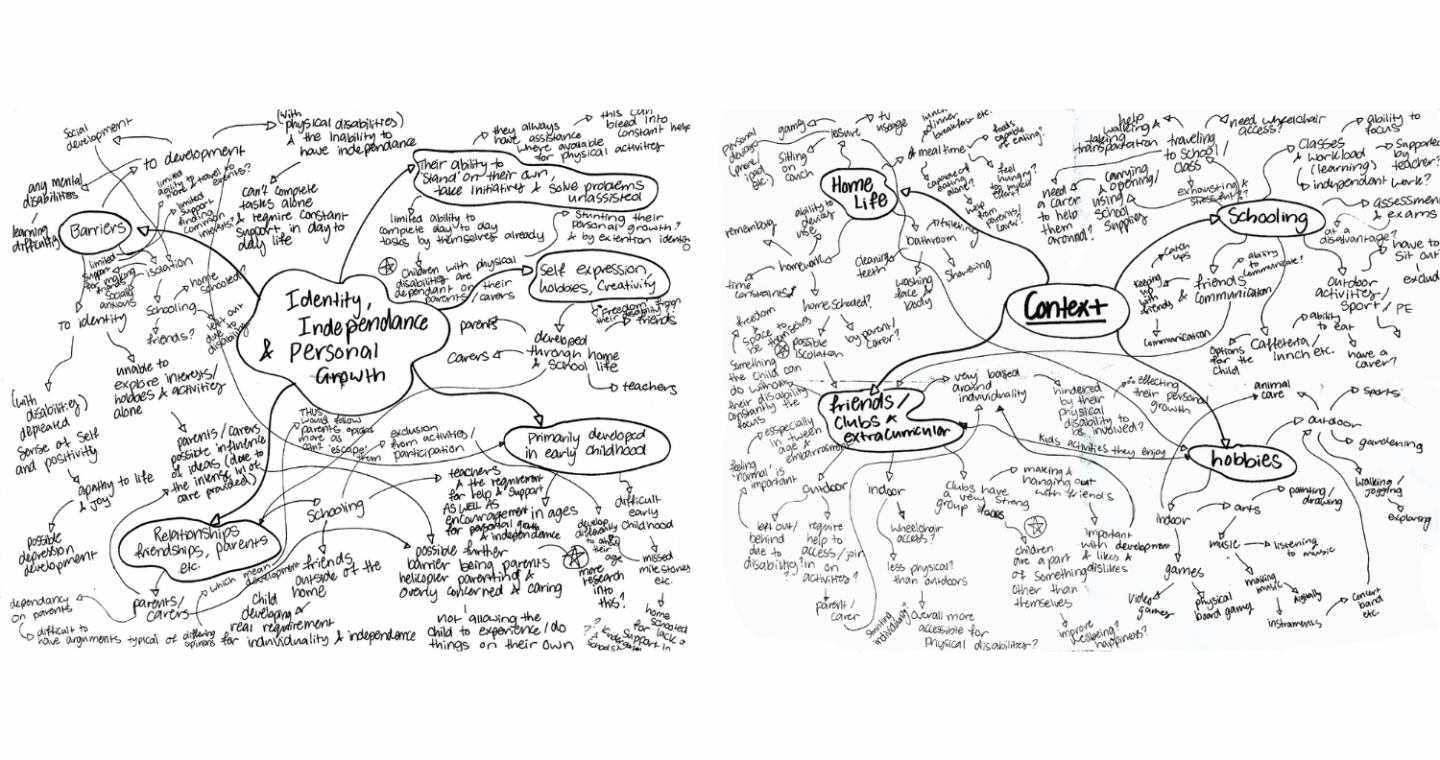 Social
development
to development
any mental
disabilities
learning
difficulty
Barriers
(with
physical disabilities)
& the inability to
have independance
can't complete
tasks alone
& require constant
support in day to
day life
limited
ability to travel
limited
support
finding
common
interests?
limited
support
for making
friends
socially
anxious
isolation
home
schooled?
Schooling
friends?
left out
due to
disability
TO identity
unable to
explore interests/
hobbies & activities
alone
(with
disabilities)
depleated
sense of self
and positivity
apathy to life
& joy
possible
depression
development
they always
have assistance
where available
for physical activities
this can
bleed into
constant help
Their ability to
'stand on their own,
take initiative & solve problems
unassisted
limited ability to
complete day to day
tasks by themselves already
Stunting their
personal growth?
& by extention identity
Children with physical
disabilities are
dependant on their
parents/carers
Self expression,
hobdoies, Creativity
Freedom from
their disability?
friends
developed
through home
& School life
parents
Carers
teachers
Identity,
Independance
& Personal
Growth
Primarily developed
in early childhood
THUS
would follow
parents
more as
cant 'escape'
them
exclusion
from activities/
participation
parents/carers
possible influence
of ideas (due to
the intense
care provided)
Relationships
friendships, parents
etc.
Schooling
friends
outside of the
home
teachers
& the requirement
for help & Support
AS WELL AS
encouragement in ages
for personal growth
& independance
possible further
barrier being parents
helicopter parenting &
overly concerned & caring
not allowing the
child to experience/do
things on their own
difficult
early
childhood
missed
milestones
etc.
develop
differently
to
their
age
more
research
into
this?
home
schooled
for lack of
Support in
Schools
parents/
carers
dependancy
on parents
difficult to
have arguments typical of differing
opinions
which mean
development
Child
developing
real requirement
for individuality & independance
Context
Home
Life
leisure
gaming
TV
usage
sitting
on
couch
personal
devices
(phone/
ipad
etc.)
ability to
devices
use
mealtime
lunch
dinner
breakfast etc.
foods
capable
of eating?
capable of
eating
alone?
feel
hungry?
too much
effort?
help
from
parents/
carer?
bathroom
toileting
showering
washing
face &
body
cleaning
teeth
homework
remembering
time
constraints
home schooled?
by parent/
carer?
possible
isolation
freedom
& space to
be themselves
something
the child can
do without
their disability
constantly the
focus
Schooling
traveling
to school/
class
help
walking &
taking
transportation
need wheelchair
access?
exhausting &
stressful?
carrying
& opening/
using
school
supplies
need
a carer
to help
them
around?
Classes
& workload
(learning)
ability to
focus
supported
by
teacher?
independant work?
assessments
& exams
at a
disadvantage?
outdoor
activities/
Sport / PE
have to
sit out
have a
carer?
friends
& communication
ability to
communicate?
catch
ups
keeping
up
with
friends
communication
Cafeteria/
lunch etc.
ability
to eat
options
for the
child
friends/
clubs &
extracurricular
especially
in tween
age &
embarrassment
feeling
'normal' is
important
outdoor
left out/
behind
due to
disability?
require
help to
access/join
in on
activities?
parent/
carer
indoor
wheelchair
access?
less physical?
than outdoors
overall more
accessible for
physical disabilities?
stunting
individuality?
very based
around
individuality
hindered
by their
physical
disability to
be involved?
effecting
their personal
growth
Kids activities they enjoy
clubs have
a very strong
group focus
making &
hanging out
with friends
children
are a part
of something
other than
themselves
important
with development
& likes &
dislikes
improve
wellbeing?
happiness?
hobbies
animal
care
outdoor
sports
gardening
walking/
jogging
exploring
indoor
games
video
games
physical
board games
arts
painting/
drawing
music
listening
to music
making
music
digitally
instruments
concert
band
etc